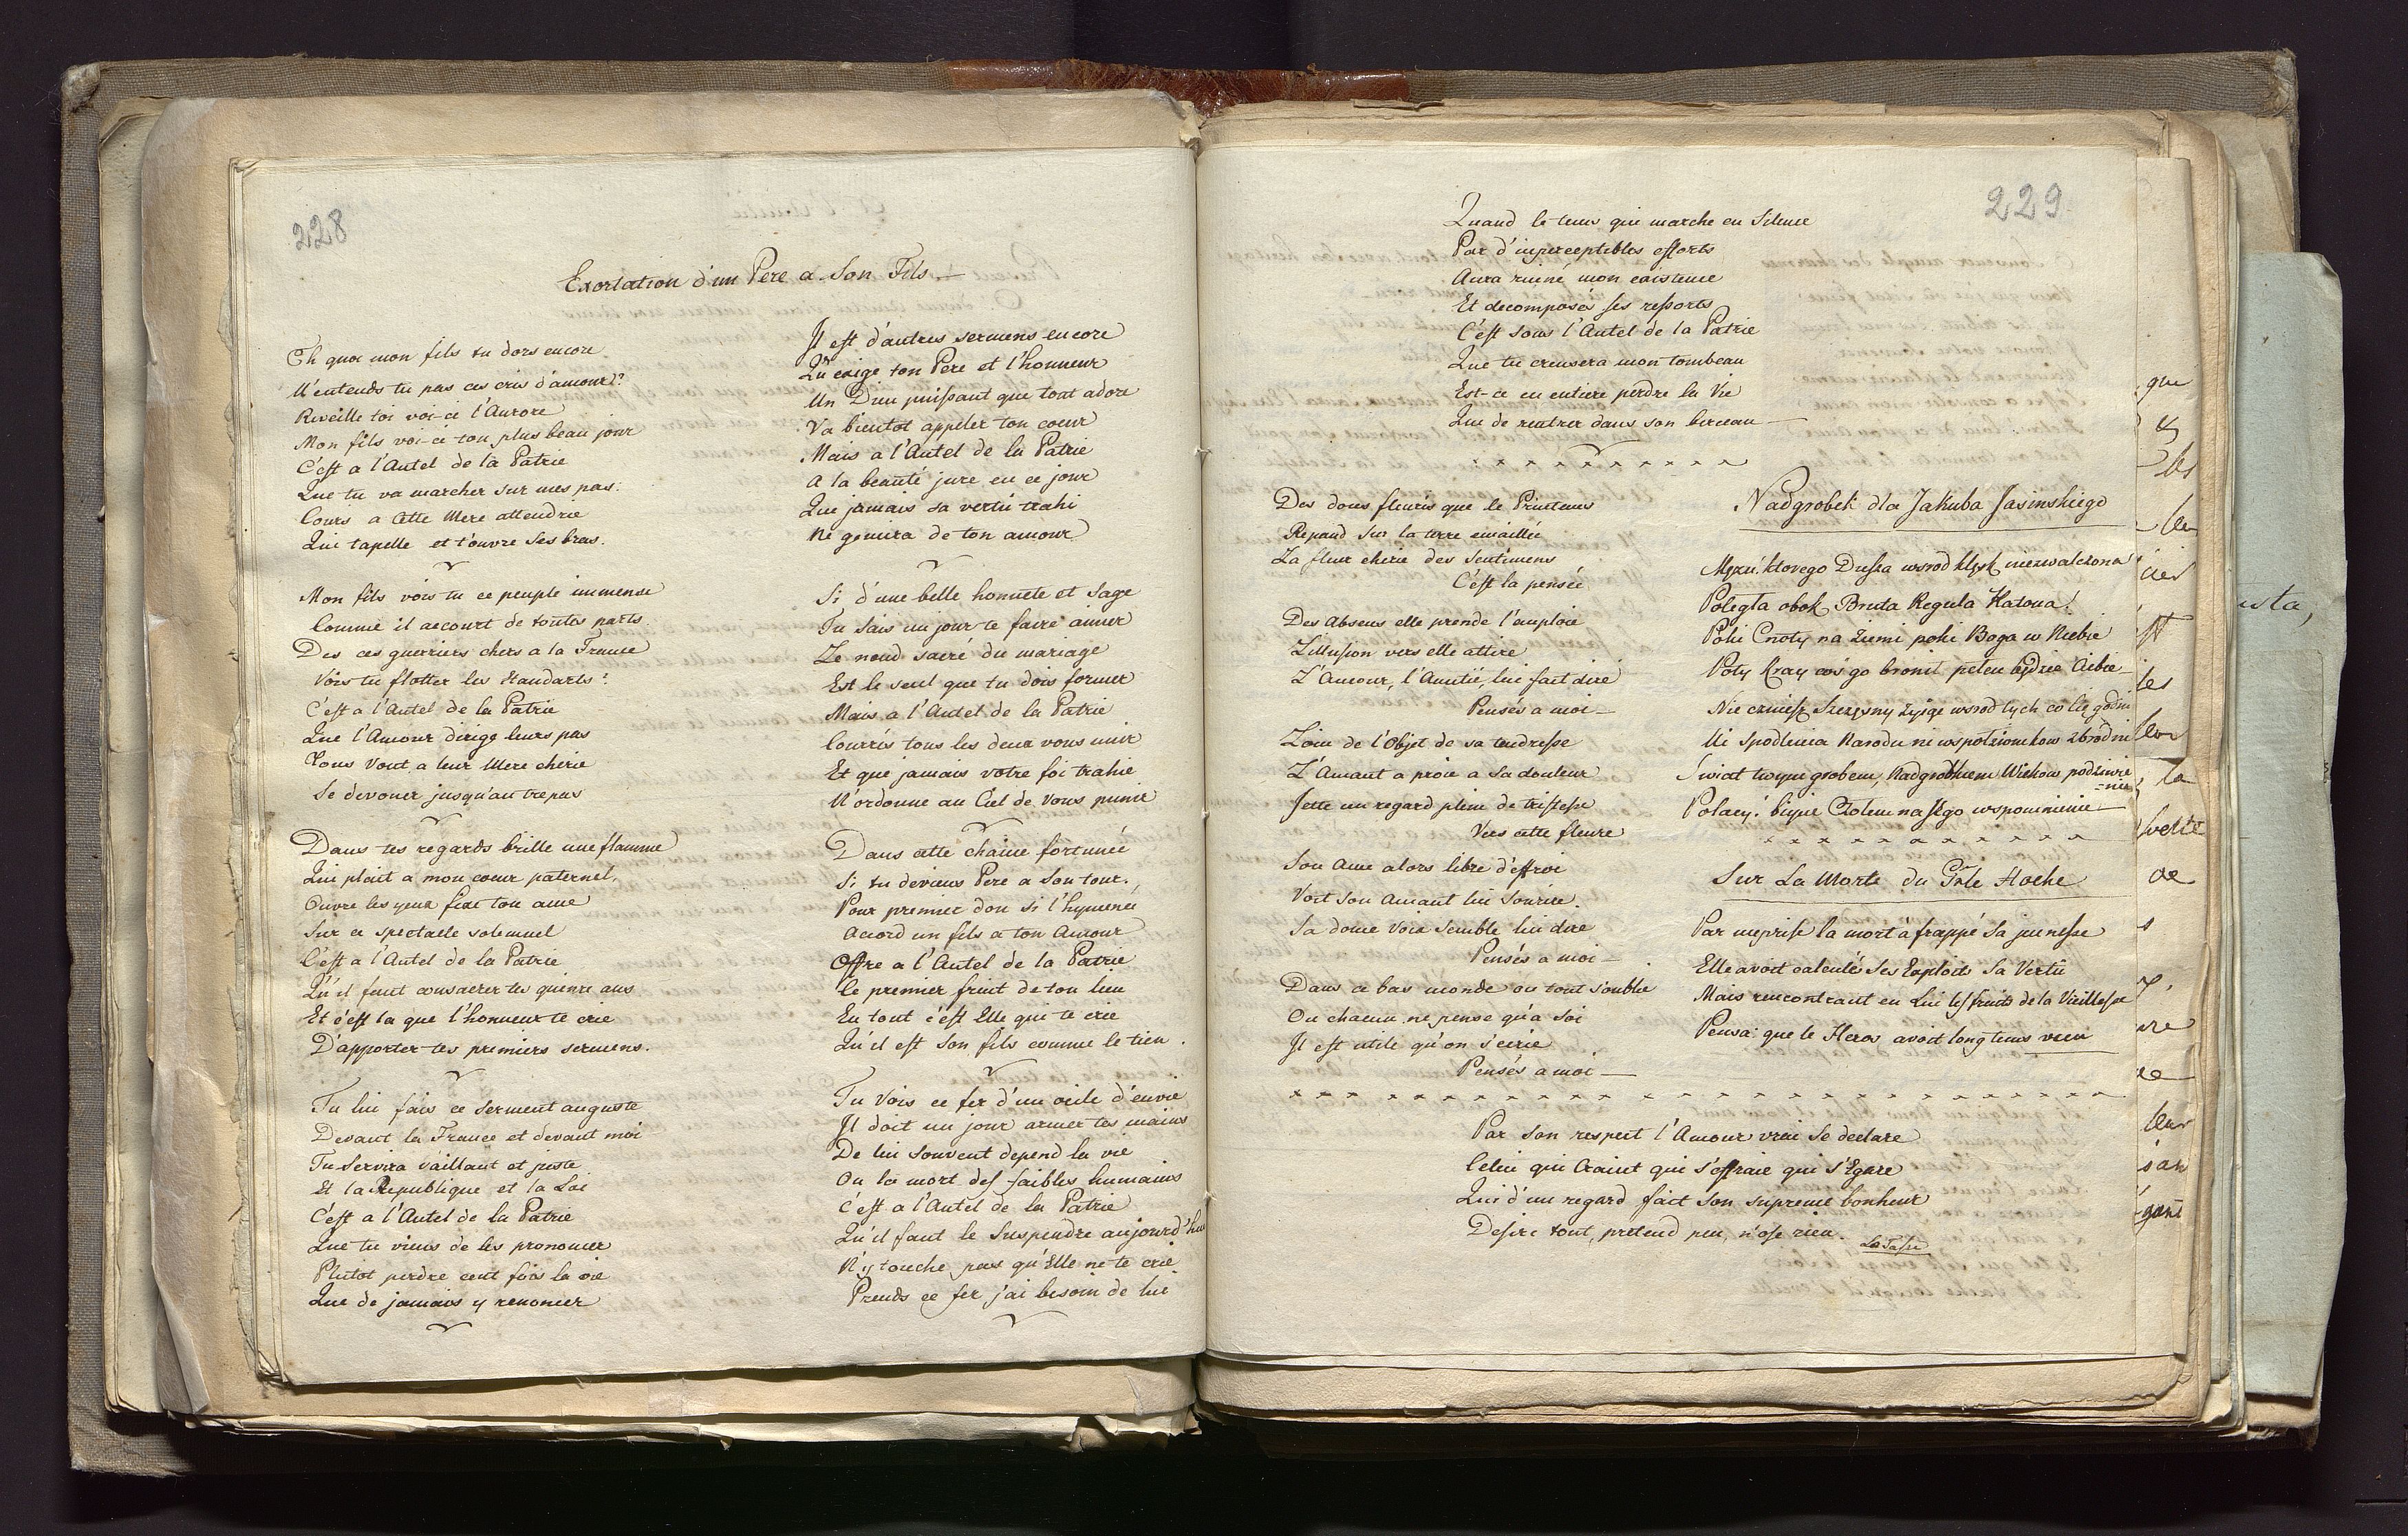 228
Exortation d'un Pere a Son Fils. —
Eh quoi mon fils tu dors encore
N'entends tu pas ces cris d'amour?
Reveille toi voi-ci l'Aurore
Mon fils voi-ci ton plus beau jour
C'est a l'Autel de la Patrie
Que tu va marcher sur mes pas.
Cours a Cette Mere attendrie
Qui t'apelle et t'ouvre Ses bras.
Mon fils vois tu ce peuple immense
Comme il accourt de toutes parts.
Des ces guerriers chers a la France
Vois tu flotter les Etandarts?
C'est a l'Autel de la Patrie
Que l'Amour dirige leurs pas
Tous Vont a leur Mere cherie
Se devouer jusqu'au trepas
Dans tes regards brille une flamme
Qui plait a mon coeur paternel,
Ouvre les yeux fixe ton ame
Sur ce spectacle solemnel
C'est a l'Autel de la Patrie
Qu'il faut consacrer tes quinze ans
Et c'est la que l'honneur te crie
D'apporter tes premiers sermens.
Tu lui fais ce Serment auguste
Devant la France et devant moi
Tu Servira vaillant et juste
Et la Republique et la Loi
C'est a l'Autel de la Patrie
Que tu viens de les prononcer
Plutot perdre cent fois la vie
Que de jamais y renoncer
Il est d'autres sermens encore
Qu'exige ton Pere et l'honneur
Un Dieu puissant que tout adore
Va bientot appeler ton coeur
Mais a l'Autel de la Patrie
A la beauté jure en ce jour
Que jamais sa vertù trahi
Ne gemira de ton amour
Si d'une belle honnete et Sage
Tu Sais un jour te faire aimer
Le noeud sacré du mariage
Est le seul que tu dois former
Mais a l'Autel de la Patrie
Courrés tous les deux vous unir
Et que jamais votre foi trahie
N'ordonne au Ciel de Vous punir
Dans cette chaine fortunée
Si tu deviens Pere a Son tour.
Pour premier don si l'hymenée
Accord un fils a ton Amour
Offre a l'Autel de la Patrie
Ce premier fruit de ton lien
En tout c'est Elle qui te crie
Qu'il est Son fils comme le tien.
Tu Vois ce fer d'un oeile d'envie
Il doit un jour armer tes mains
De lui souvent depend la vie
Ou la mort des faibles humains
C'est a l'Autel de la Patrie
Qu'il faut le Suspendre aujourd'hui
N'y touche pas qu'Elle ne te crie
Prends ce fer j'ai besoin de lui
229
Quand le tems qui marche en Silence
Par d'imperceptibles efforts
Aura ruiné mon existence
Et decomposés ses ressorts
C'est sous l'Autel de la Patrie
Que tu creusera mon tombeau
Est-ce en entiere perdre la Vie
Que de rentrer dans son berceau —
Des dons fleuris que le Printems
Repand Sur la terre emaillée
La fleur cherie des Sentimens
C'est la pensée
Des Absens elle prende l'emploie
L'illusion vers elle attire
L'Amour, l'Amitié, lui fait dire
Pensés a moi —
Loin de l'Objet de sa tendresse
L'Amant a proie a Sa douleur
Jette un regard plein de tristesse
Vers cette fleure
Son Ame alors libre d'effroi
Voit Son Amant lui Sourire.
Sa douce Voix Semble lui dire
Pensés a moi —
Dans ce bas monde ou tout s'oublie
Ou chacun ne pense qu'a Soi
Il est utile qu'on s'ecrie
Pensés a moi —
Nadgrobek dla Jakuba Jasinskiego
Mężu! ktorego Dusza wsrod klęsk niezwalczona
Poległa obok Bruta Regula Katona!
Poki Cnoty na Ziemi poki Boga w Niebie
Poty Kray coś go bronił pełen będzie Ciebie —
Nie czuiesz Szczęsny żyiąc wsrod tych co Cię godni
Ni Spodlenia Narodu ni wspolziomkow zbrodni
Swiat twym grobem, Nadgrobkiem Wiekow podziwie
=nie
Polacy! biymy Czołem na Jego wspomnienie —
Sur La Morte du Gnle Hoche
Par meprise la mort à frappé Sa jeunesse
Elle avoit calculés Ses Exploits Sa Vertù
Mais rencontrant en Lui les fruits de la Vieillesse
Pensa: que le Heros avoit long tems vecu
Par Son respect l'Amour vrai Se declare
Celui qui Craint qui s'effraie qui s'Egare
Qui d'un regard fait Son Supreme bonheur
Desire tout, pretend peu, n'ose rien.
Le Tasse
que
les
de
ista,